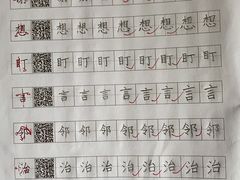 想 想 想 想 想 想 想
盯 盯 盯 盯 盯 盯 盯
言 言 言 言 言 言 言
邻 邻 邻 邻 邻 邻 邻
治 治 治 治 治 治 治